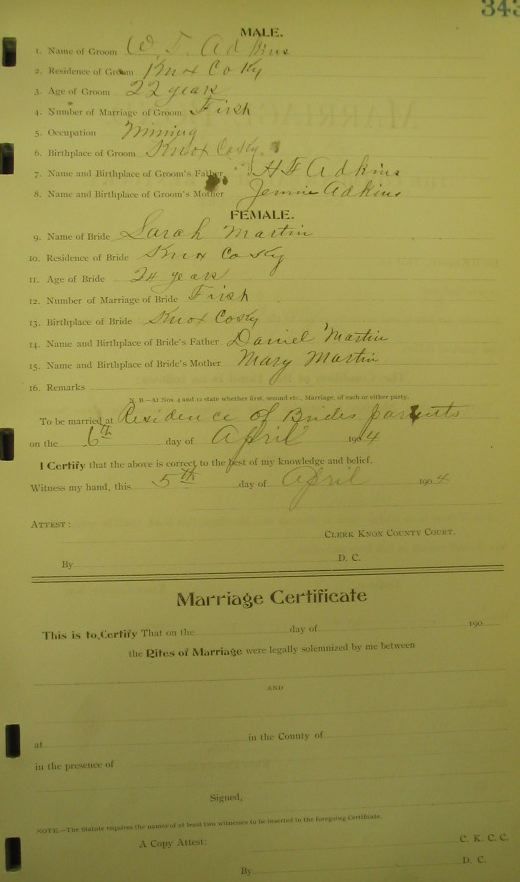 343
MALE.
1. Name of Groom W. T. Adkins
2. Residence of Groom Knox Co Ky
3. Age of Groom 22 years
4. Number of Marriage of Groom First
5. Occupation Mining
6. Birthplace of Groom Knox Co Ky.
7. Name and Birthplace of Groom's Father H F Adkins
8. Name and Birthplace of Groom's Mother Jennie Adkins
FEMALE.
9. Name of Bride Sarah Martin
10. Residence of Bride Knox Co Ky
11. Age of Bride 24 years
12. Number of Marriage of Bride First
13. Birthplace of Bride Knox Co Ky
14. Name and Birthplace of Bride's Father Daniel Martin
15. Name and Birthplace of Bride's Mother Mary Martin
16. Remarks
N. B.—At Nos. 4 and 12 state whether first, second etc., Marriage, of each or either party.
To be married at Residence of Brides parents
on the 6th day of April 1904
I Certify that the above is correct to the best of my knowledge and belief.
Witness my hand, this 5th day of April 1904
ATTEST:
CLERK KNOX COUNTY COURT.
By D. C.
Marriage Certificate
This is to Certify That on the day of 190
the Rites of Marriage were legally solemnized by me between
AND
at in the County of
in the presence of
Signed,
NOTE.—The Statute requires the names of at least two witnesses to be inserted in the foregoing Certificate.
A Copy Attest: C. K. C. C.
By D. C.